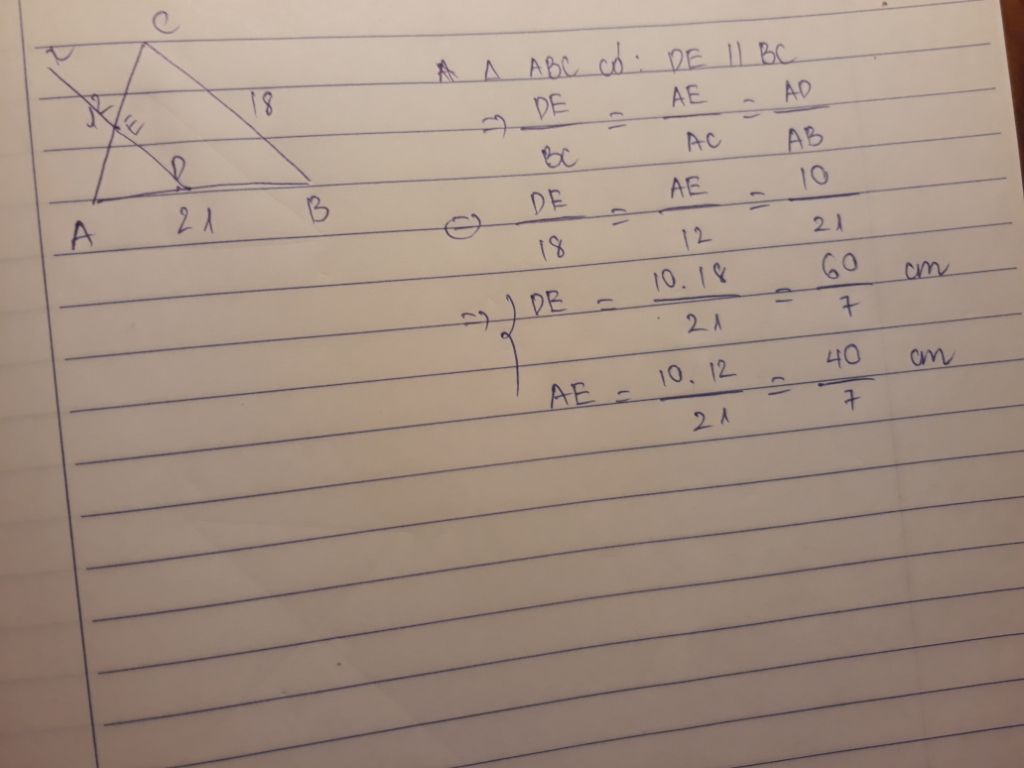 C
x
12
E
18
D
A
21
B
Δ ABC có: DE // BC
=> DE/BC = AE/AC = AD/AB
<=> DE/18 = AE/12 = 10/21
=> { DE = 10.18/21 = 60/7 cm
AE = 10.12/21 = 40/7 cm